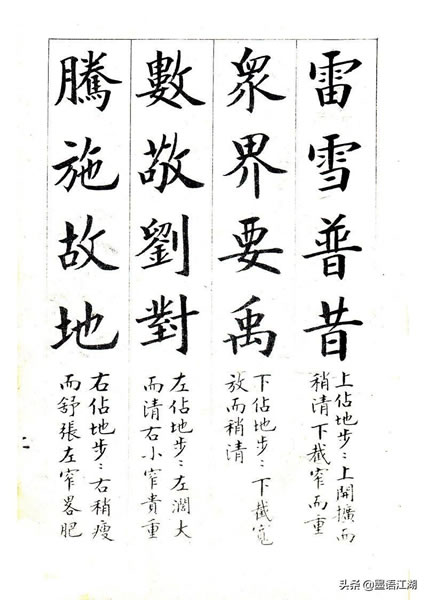 雷雪普昔
上佔地步：上開擴而
稍清下截窄而重
衆界要禹
下佔地步：下截寬
放而稍清
數敬劉對
左佔地步：左濶大
而清右小窄貴重
騰施故地
右佔地步：右稍瘦
而舒張左窄畧肥
头条@墨语江湖